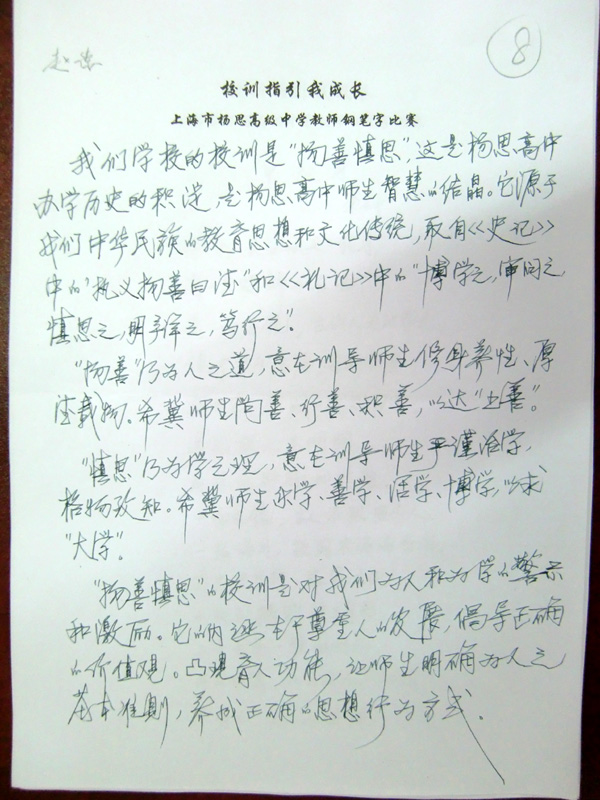 8
赵
校训指引我成长
上海市杨思高级中学教师钢笔字比赛
我们学校的校训是“扬善慎思”,这是杨思高中
办学历史的积淀,是杨思高中师生智慧的结晶。它源于
我们中华民族的教育思想和文化传统,取自<<史记>>
中的“执义扬善曰德”和<<礼记>>中的“博学之,审问之
慎思之,明辨之,笃行之”。
“扬善”乃为人之道,意在训导师生修身养性、厚
德载物。希冀师生向善、行善、积善,以达“上善”。
“慎思”乃为学之理,意在训导师生严谨治学,
格物致知。希冀师生乐学、善学、活学、博学,以求
“大学”。
“扬善慎思”的校训是对我们为人和为学的警示
和激励。它的内涵在于尊重人的发展,倡导正确
的价值观。凸现育人功能,让师生明确为人之
基本准则,养成正确的思想行为方式.